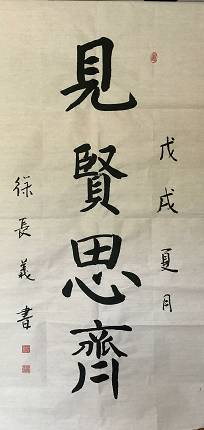 戊戌夏月
見賢思齊
徐長義書